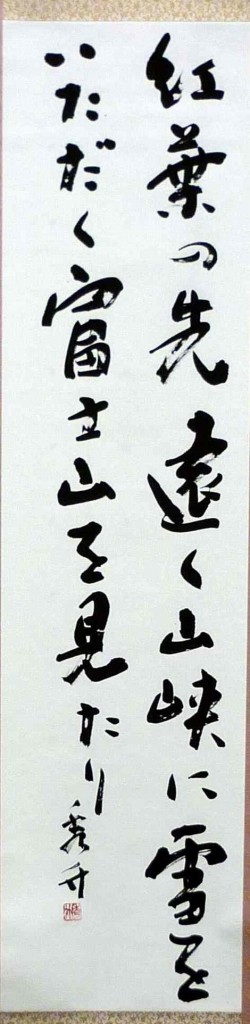 紅葉の先遠く山峡に雪を
いただく富士山を見たり
秀舟